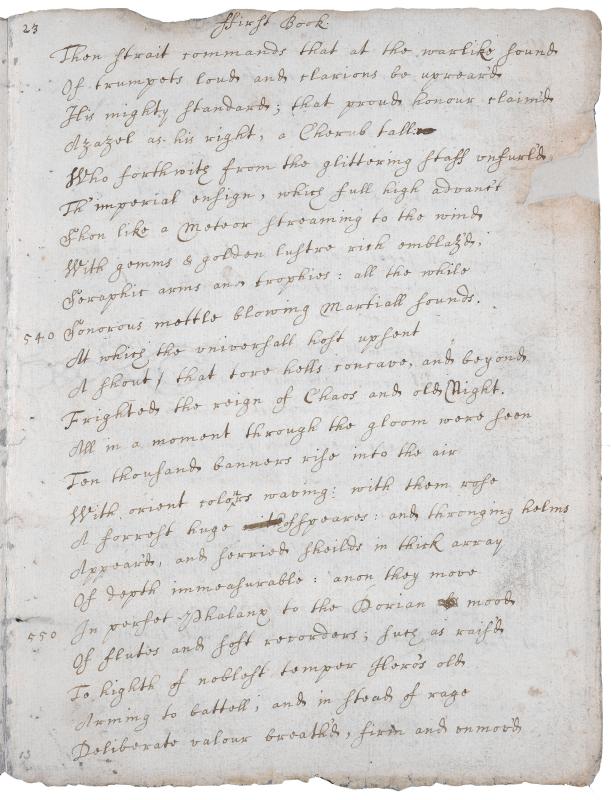 23 ffirst Book
Then strait commands that at the warlike sound
Of trumpets loud and clarions be upreard
His mighty standard; that proud honour claim'd
Azazel as his right, a Cherub tall:
Who forthwith from the glittering staff unfurld
Th' imperial ensign, which full high advanc't
Shon like a Meteor streaming to the wind
With gemms & golden lustre rich emblaz'd,
Seraphic arms and trophies: all the while
540 Sonorous mettle blowing Martiall sounds.
At which the vniversall host upsent
A shout, that tore hells concave, and beyond
Frighted the reign of Chaos and old Night.
All in a moment through the gloom were seen
Ten thousand banners rise into the air
With orient colors waving: with them rose
A forrest huge of speares: and thronging helms
Appear'd, and serried sheilds in thick array
Of depth immeasurable: anon they move
550 In perfet Phalanx to the Dorian mood
Of flutes and soft recorders; such as rais'd
To highth of noblest temper Hero's old
Arming to battell; and in stead of rage
Deliberate valour breath'd, firm and unmov'd